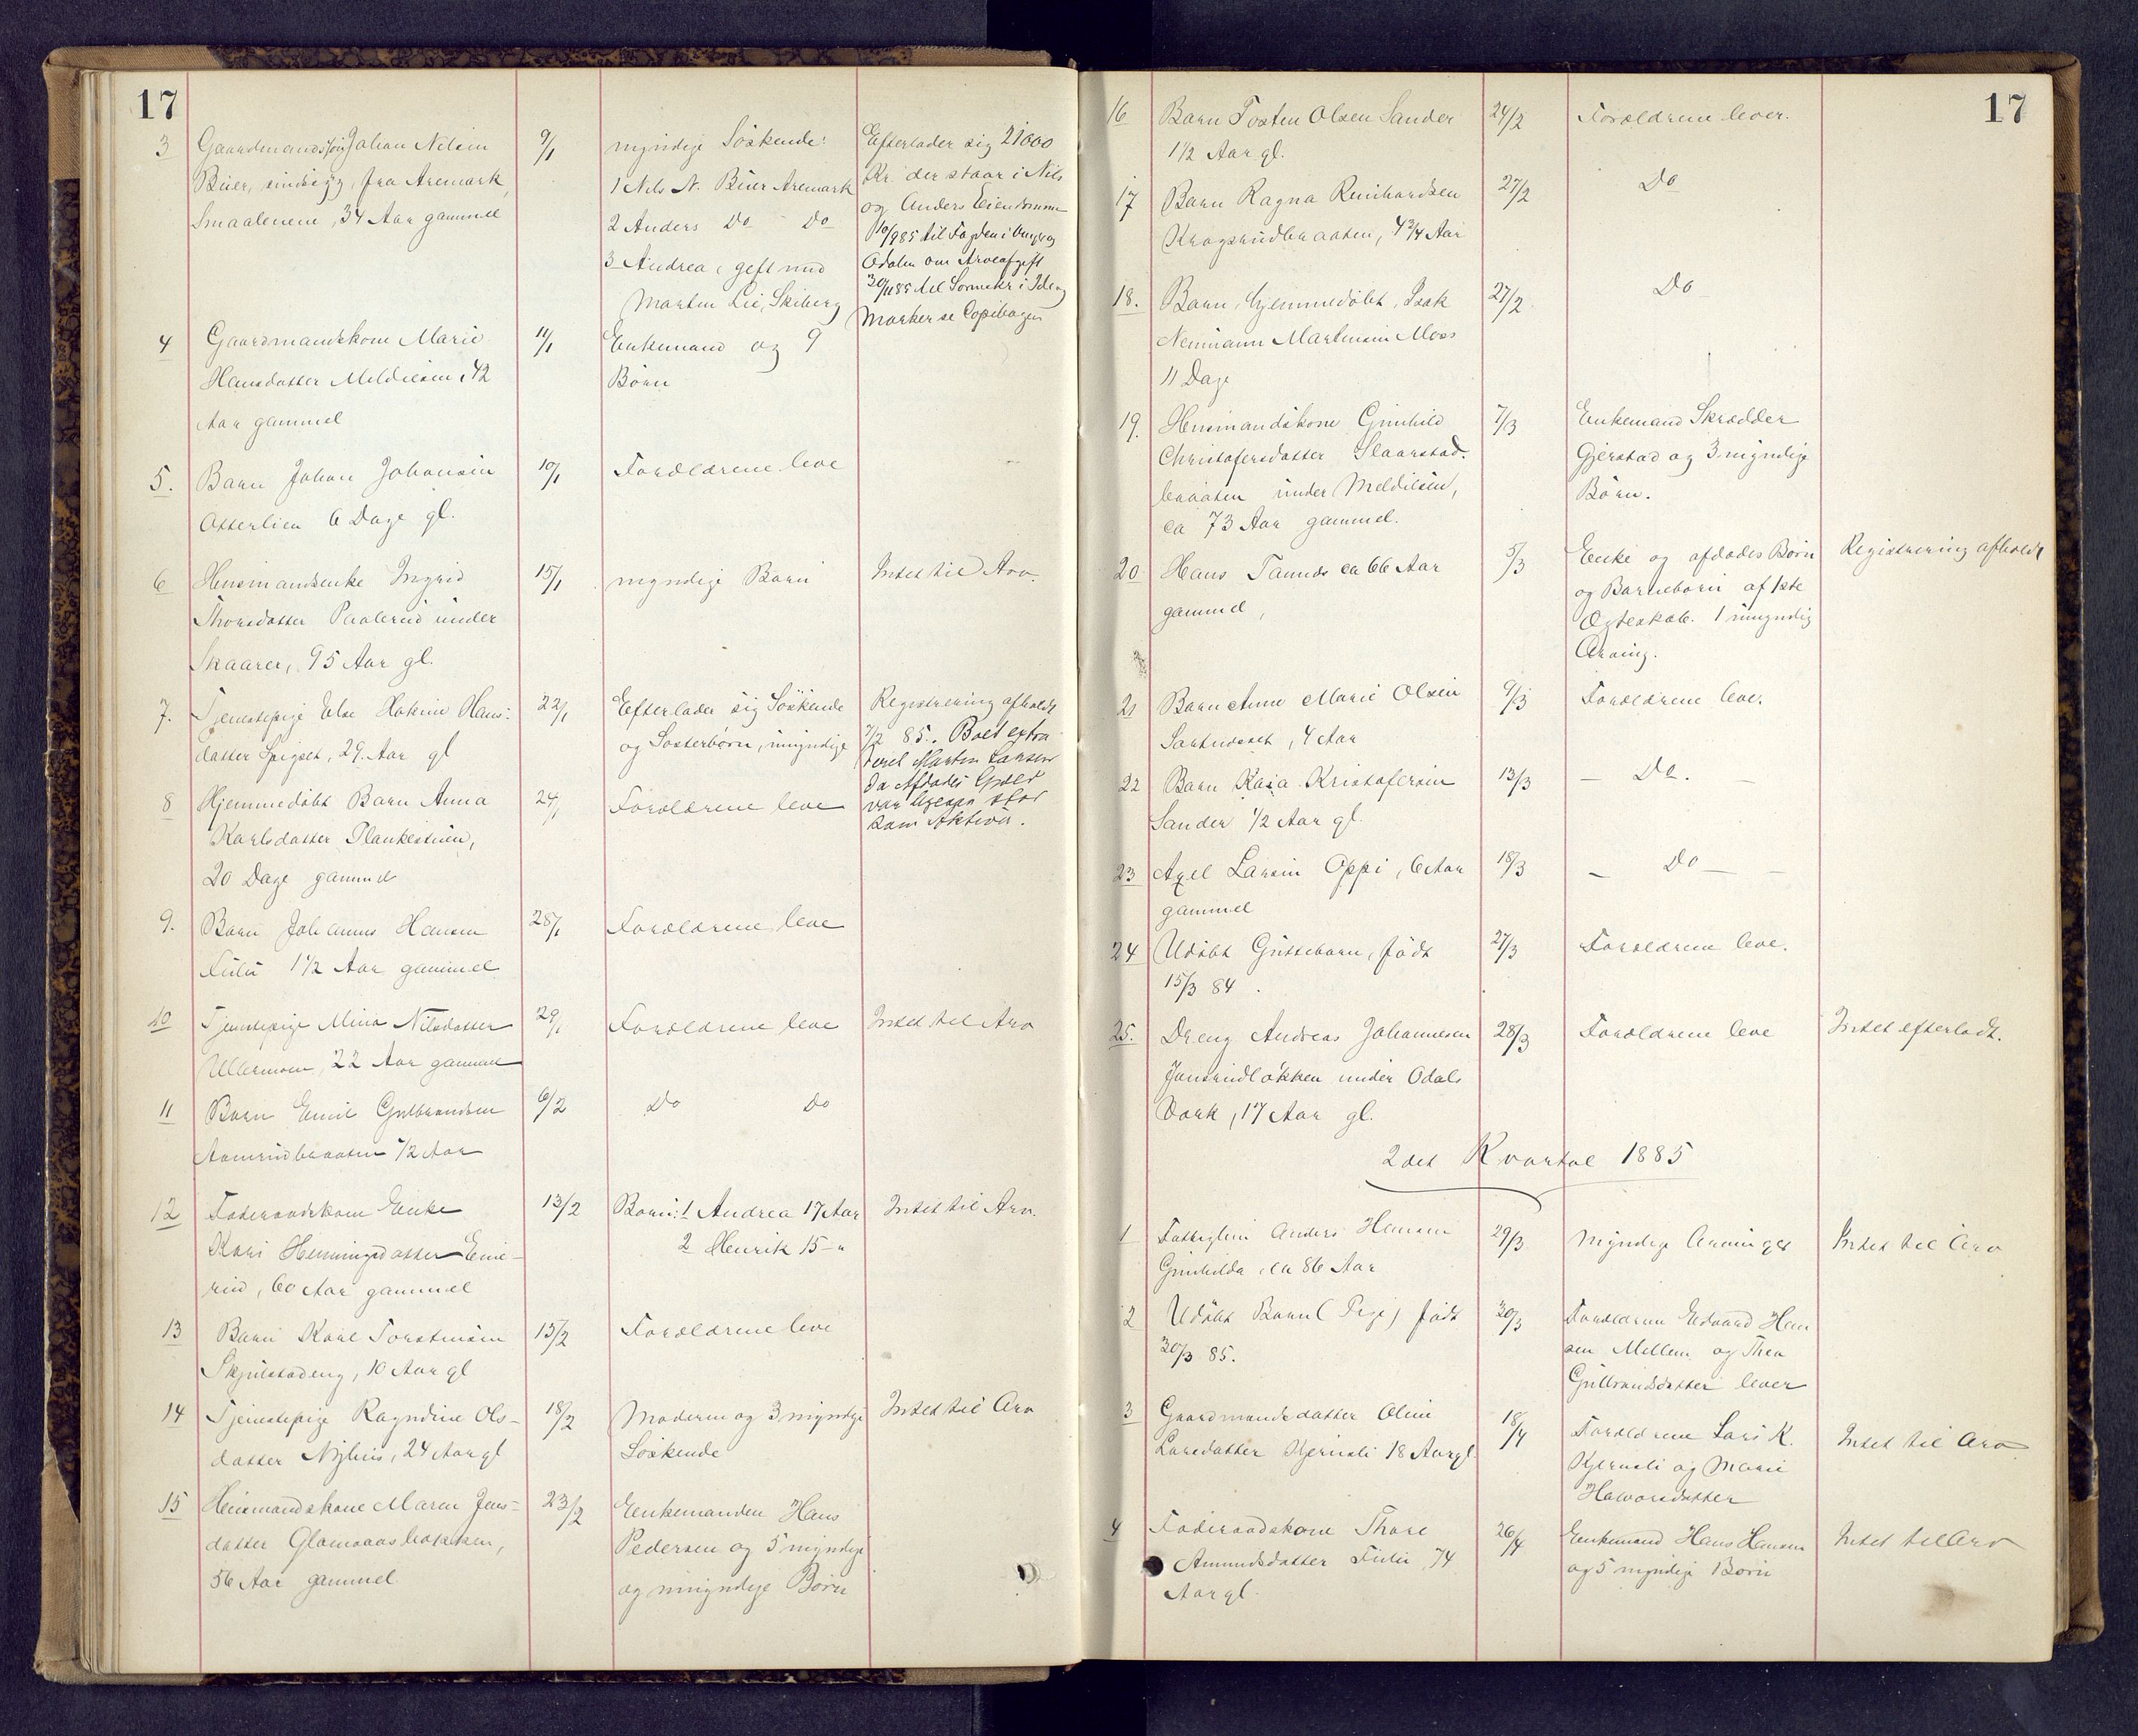 17
3 Gaardmandssøn Johan Nilsen 9/1 myndige Söskende: Efterlader sig 21000
Buer, sindssyg, fra Aremark, 1 Nils N. Buer Aremark Kr. der staar i Nils
Smaalenene, 34 Aar gammel 2 Anders Do Do og Anders Eiendomme
10/9 85 til Fogden i Vinger og
3 Andrea, gift med Odalen om Arveafgift
Marten Lie, Skiberg 30/11 85 til Sorenskr i Ide og
Marker se Copibogen
4 Gaardmandskone Marie 11/1 Enkemand og 9
Hansdatter Meldieseen, 42 Børn
Aar gammel
5. Barn Johan Johansen 10/1 Forældrene leve
Atterlien 6 Dage gl.
6 Husmandsenke Ingrid 15/1 myndige Børn Intet til Arv.
Thorsdatter Paalerud under
Skaarer, 95 Aar gl.
7. Tjenestepige Else Katrine Hans- 22/1 Efterlader sig Söskende Registrering afholdt
datter Spigset, 29 Aar gl og Søsterbörn, umyndige 7/2 85. Boet extra-
deret Marten Larsen
da Afdødes Gjæld
var ligesaa stor
som Aktiva.
8 Hjemmedøbt Barn Anna 24/1 Forældrene leve
Karlsdatter Plankestuen,
20 Dage gammel
9. Barn Johannes Hansen 28/1 Forældrene leve
Fulu 1 1/2 Aar gammel
10 Tjenestepige Mina Nilsdatter 29/1 Forældrene leve Intet til Arv
Ullernmoen, 22 Aar gammel
11 Barn Emil Gulbrandsen 6/2 Do Do
Aamrudbraaten 1/2 Aar
12 Føderaadskone Enke 13/2 Børn: 1 Andrea 17 Aar Intet til Arv.
Kari Henningsdatter Enie- 2 Henrik 15 - "
rud, 60 Aar gammel
13 Barn Karl Torstensen 15/2 Forældrene leve
Skjulstadeng, 10 Aar gl
14 Tjenestepige Ragndine Ols- 18/2 Moderen og 3 myndige Intet til Arv
datter Nyhus, 24 Aar gl Söskende
15 Husmandskone Maren Jens- 23/2 Enkemanden Hans
datter Glomaasbakken, Pedersen og 5 myndige
56 Aar gammel og umyndige Børn
17
16 Barn Tosten Olsen Sander 24/2 Forældrene lever.
1 1/2 Aar gl.
17 Barn Ragna Reinhardsen 27/2 Do
Krogsrudbraaten, 4 3/4 Aar
18. Barn, hjemmedøbt, Isak 27/2 Do
Neumann Martensen Moss
11 Dage
19. Husmandskone Gunhild 7/3 Enkemand Skrædder
Christofersdatter Slaarstad- Gjerstad og 3 myndige
braaten under Meldiseen, Börn.
ca 73 Aar gammel.
20 Hans Tannæs ca 66 Aar 5/3 Enke og afdødes Börn Registrering afholdt
gammel, og Barnebørn af 1ste
Ægteskab. 1 umyndig
Arving.
21 Barn Anne Marie Olsen 9/3 Forældrene leve.
Sortudset, 4 Aar
22 Barn Kaia Kristofersen 13/3 - Do. -
Sander 1/2 Aar gl.
23 Axel Larsen Oppi, 6 Aar 18/3 - Do -
gammel
24 Udøbt Guttebarn, født 27/3 Forældrene leve.
15/3 84.
25. Dreng Andreas Johannesen 28/3 Forældrene leve Intet efterladt.
Jonsrudløkken under Odals
Værk, 17 Aar gl.
2det Kvartal 1885
1 Fattiglem Anders Hansen 29/3 Myndige Arvinger Intet til Arv
Gunhilda, ca 86 Aar
2 Udøbt Barn (Pige) født 30/3 Forældrene Edvard Han
30/3 85. sen Mellem og Thea
Gulbrandsdatter lever
3 Gaardmandsdatter Oline 18/4 Forældrene Lars K. Intet til Arv
Larsdatter Kjernsli 18 Aar gl. Kjernsli og Marie
Havorsdatter
4 Føderaadskone Thore 26/4 Enkemand Hans Hansen Intet til Arv
Amundsdatter Fulu, 74 og 5 myndige Børn
Aar gl.